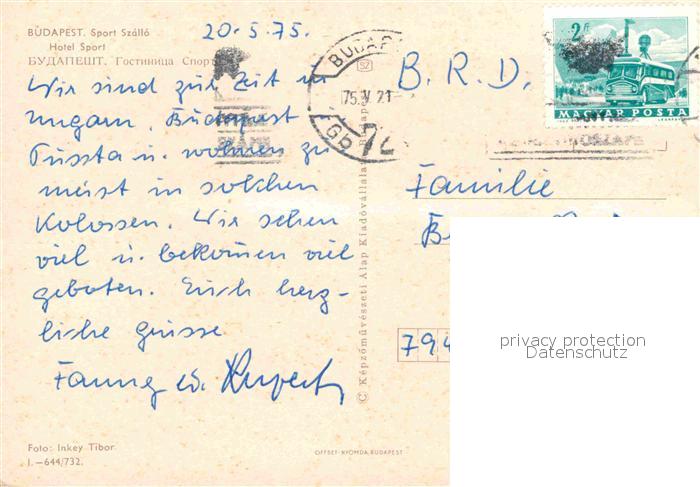 BUDAPEST. Sport Szálló
Hotel Sport
БУДАПЕШТ. Гостиница Спорт
20.5.75.
Wir sind zur Zeit in
Ungarn, Budapest
Pussta u. wohnen zu
meist in solchen
Kolossen. Wir sehen
viel u. bekommen viel
geboten. Euch herz-
liche grüsse
Fanny u. Rupert
Foto: Inkey Tibor
I.—644/732.
OFFSET-NYOMDA, BUDAPEST
© Képzőművészeti Alap Kiadóvállalata, Budapest
SZ
BUDAP
75 V 21
72
2 Ft
MAGYAR POSTA
B. R. D.
Familie
794
privacy protection
Datenschutz